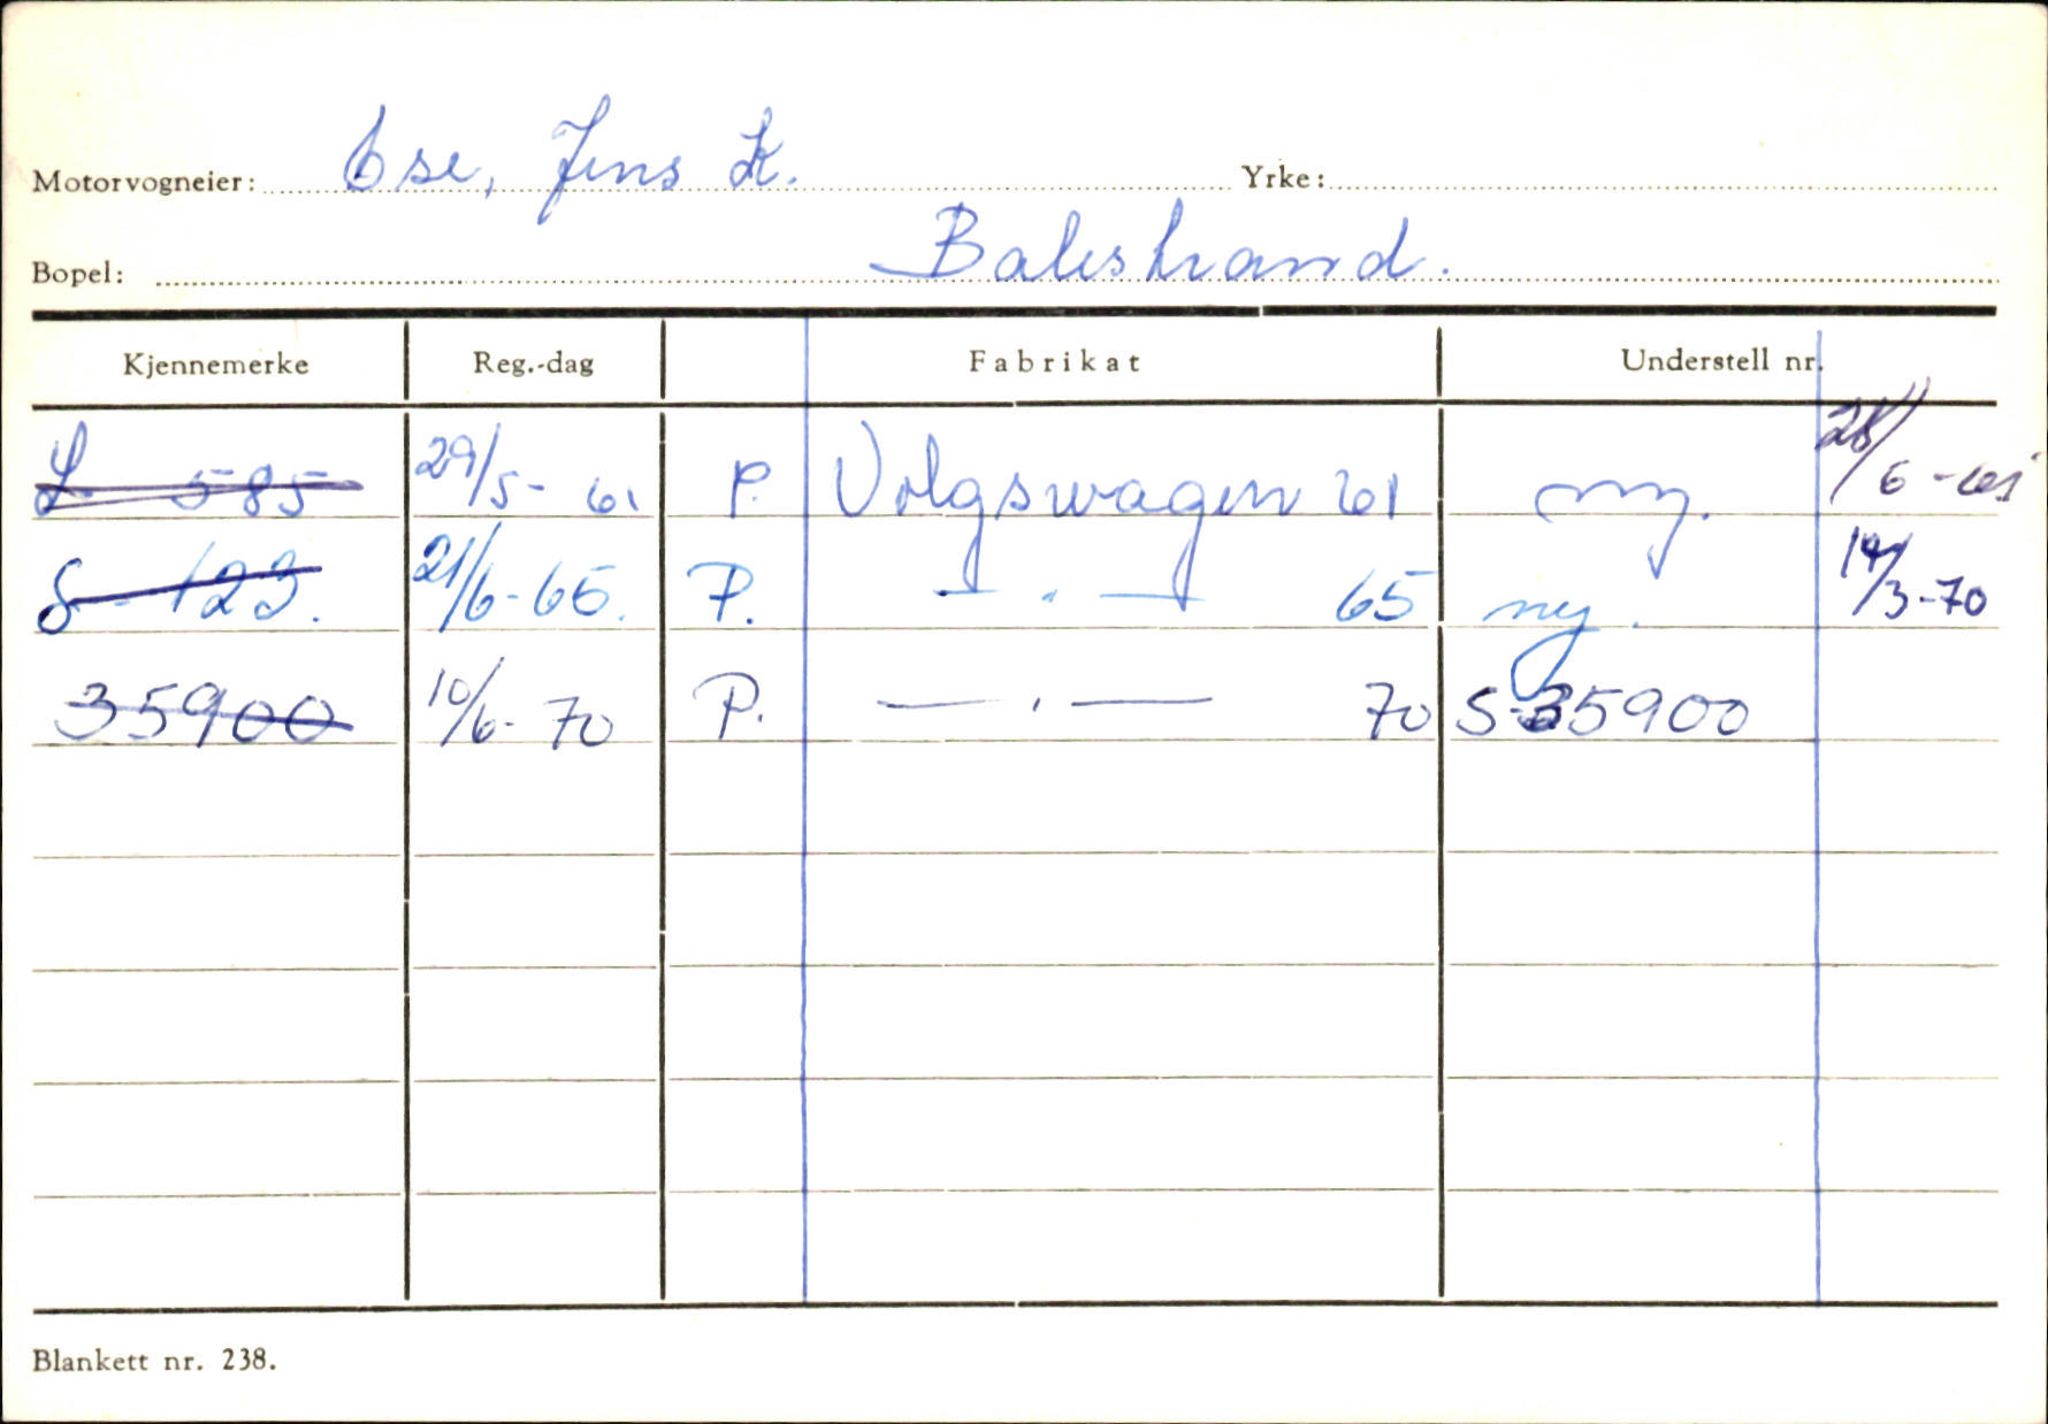 Motorvogneier: Ese, Jens K. Yrke:
Bopel: Balestrand.
Kjennemerke Reg.-dag Fabrikat Understell nr.
L 585 29/5- 61 P. Volgswagen 61 ny. 28/6-65
S - 123. 21/6-65. P. — " — 65 ny. 14/3-70
35900 10/6- 70 P. — " — 70 S-35900
Blankett nr. 238.